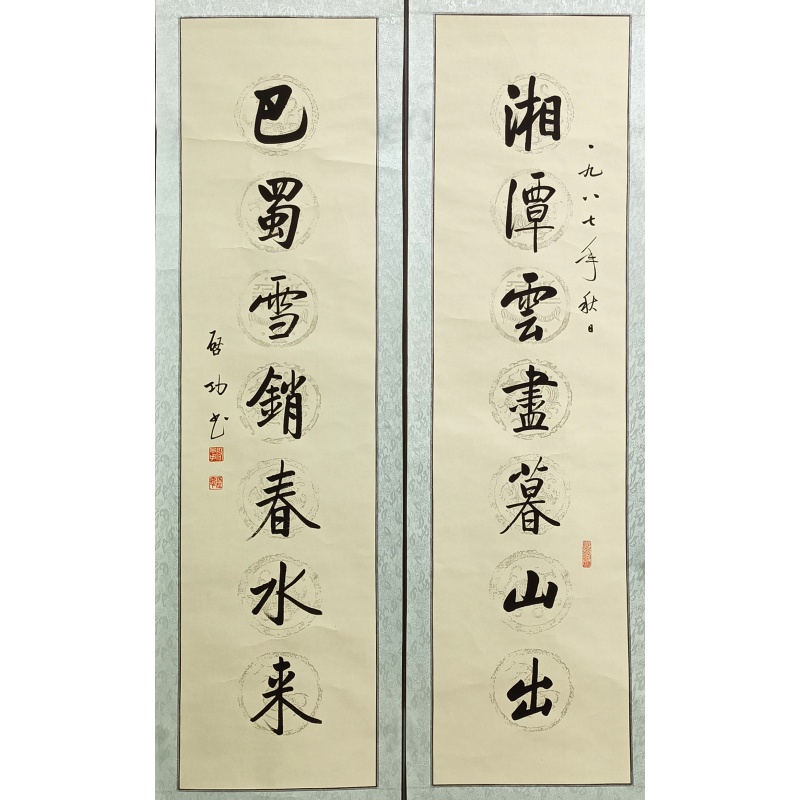 一九八七年秋日
湘潭雲盡暮山出
巴蜀雪銷春水来
啓功书